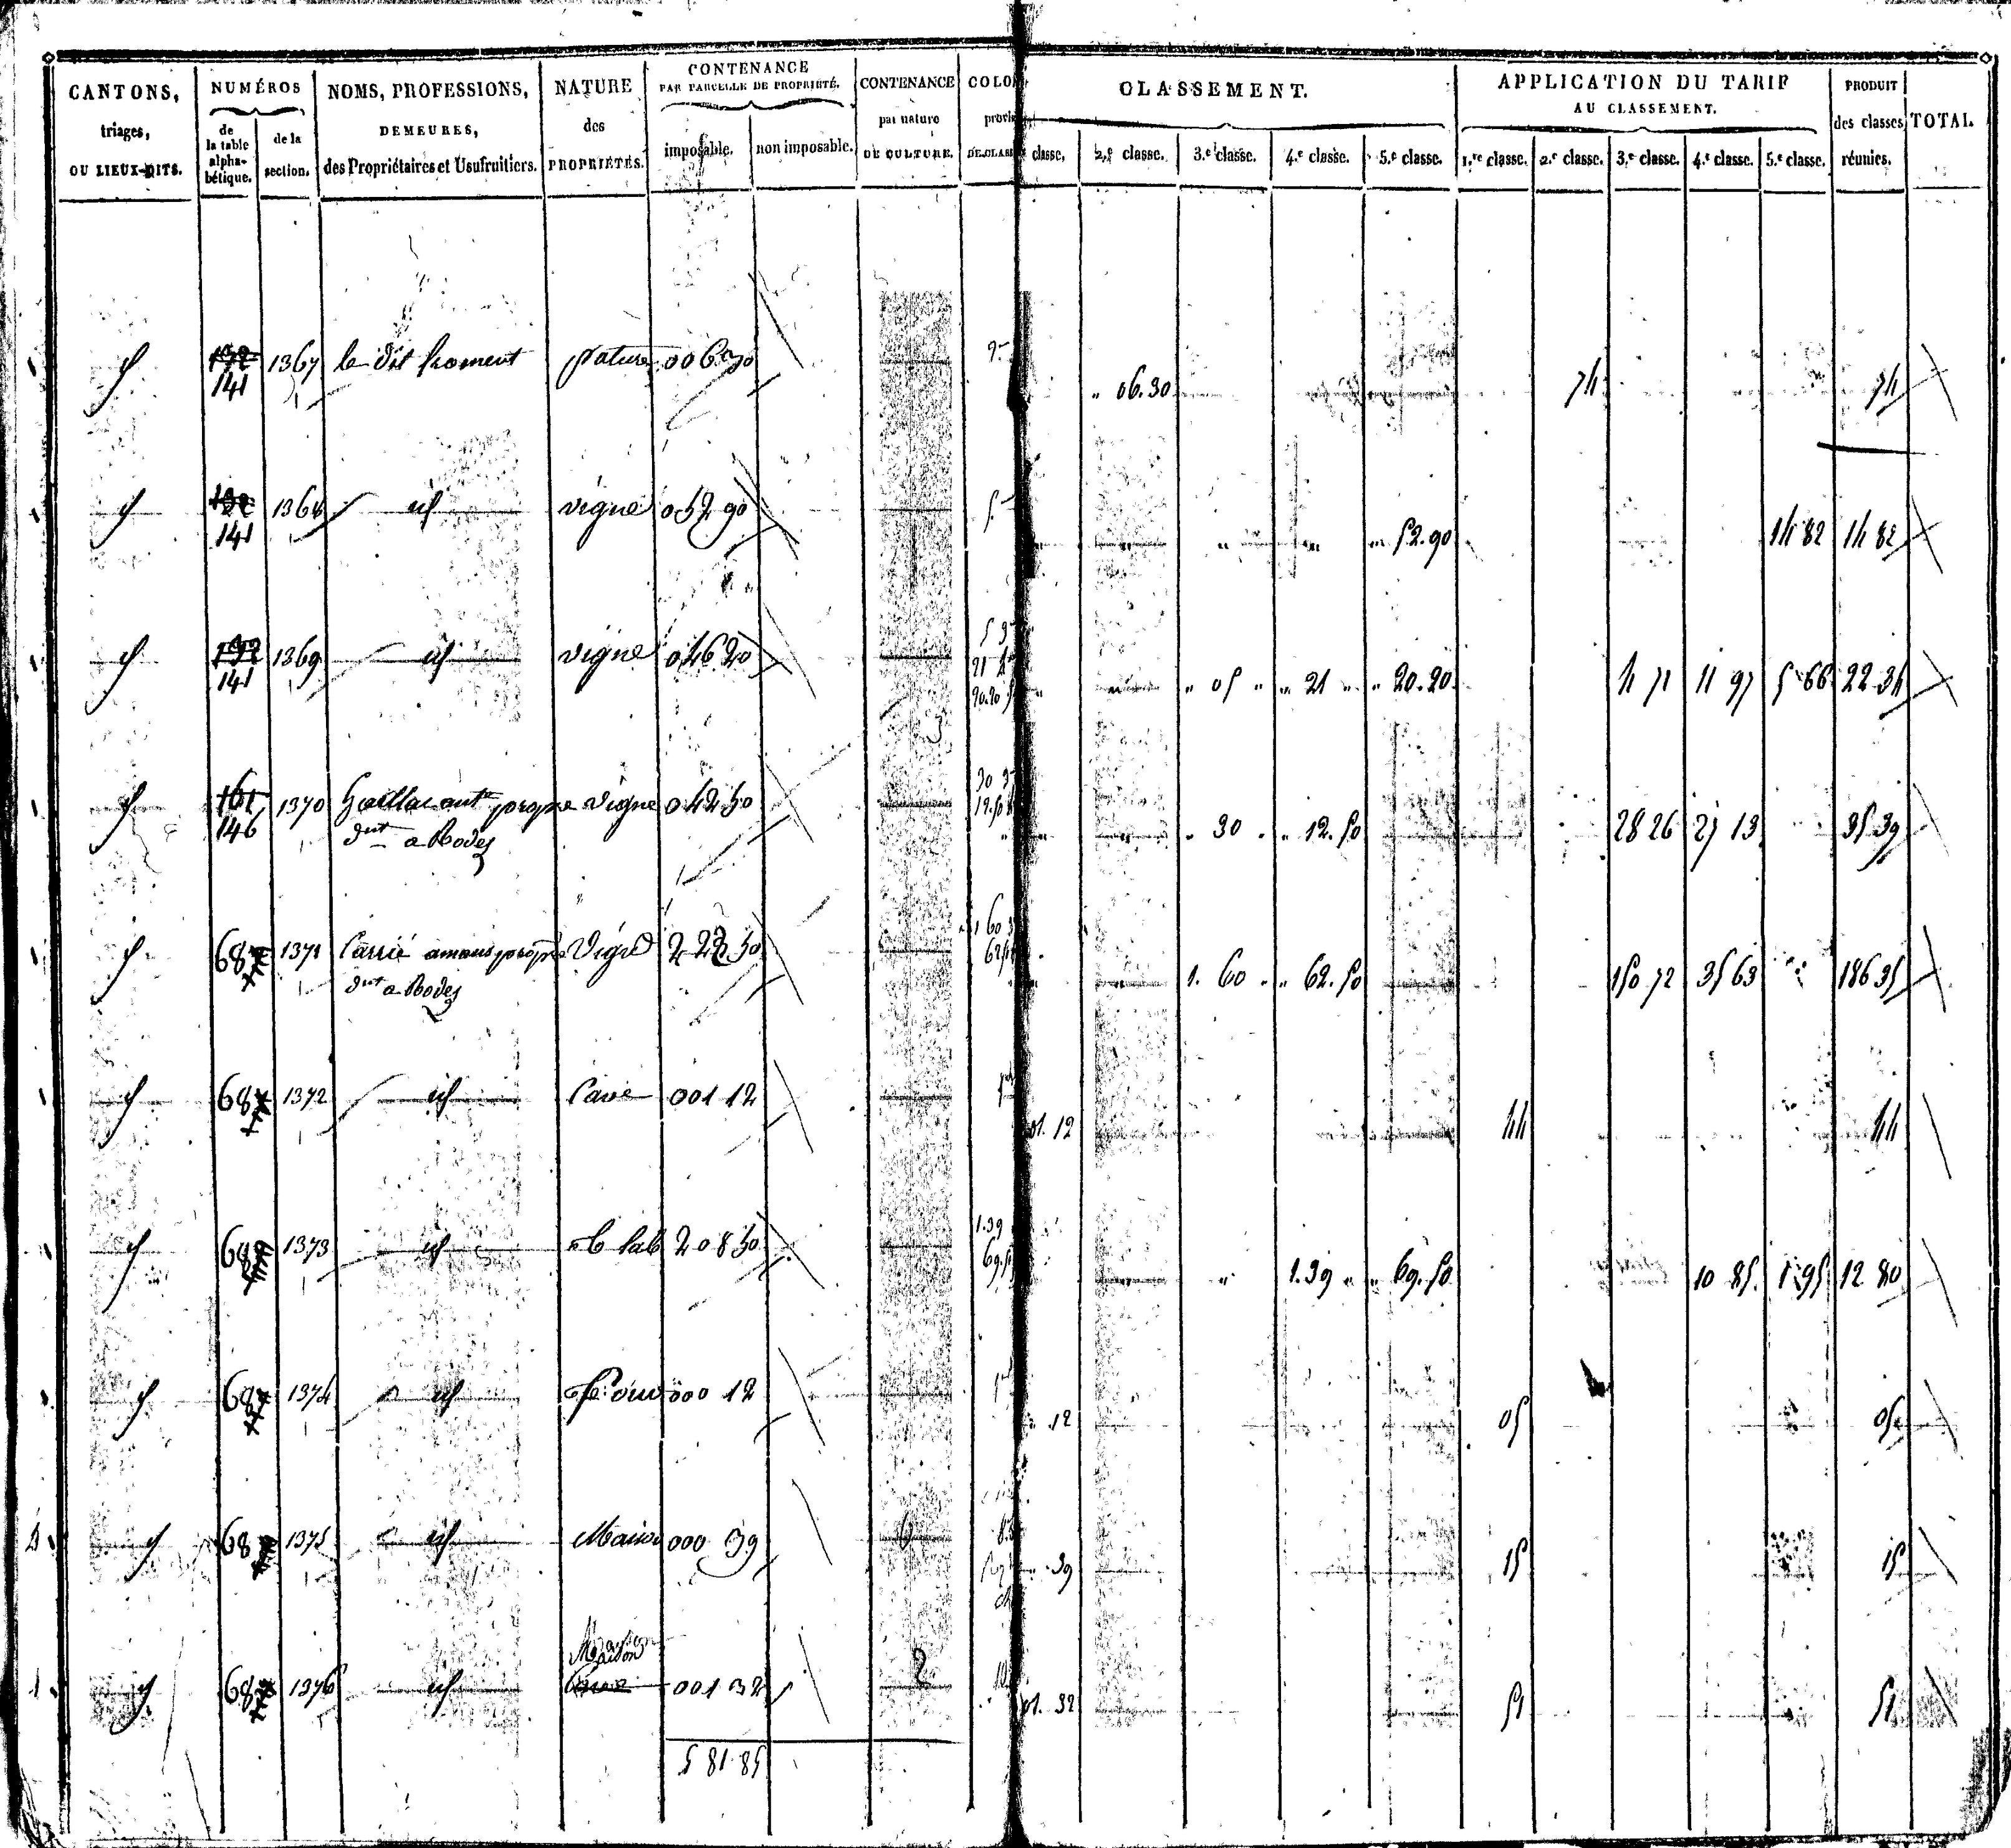 CANTONS, triages, OU LIEUX-DITS. | NUMÉROS de la table alphabétique. | de la section. | NOMS, PROFESSIONS, DEMEURES, des Propriétaires et Usufruitiers. | NATURE des PROPRIÉTÉS. | CONTENANCE PAR PARCELLE DE PROPRIÉTÉ. imposable. | non imposable. | CONTENANCE par nature DE CULTURE. | CLASSEMENT. classe. | 2.e classe. | 3.e classe. | 4.e classe. | 5.e classe. | APPLICATION DU TARIF AU CLASSEMENT. 1.re classe. | 2.e classe. | 3.e classe. | 4.e classe. | 5.e classe. | PRODUIT des classes réunies. | TOTAL.
id 141 1367 le dit froment pature 0 06 30 " 06.30 74 74
id 141 1368 id vigne 0 52 90 " 52.90 14 82 14 82
id 141 1369 id vigne 0 46 20 " 05 " " 21 " " 20.20 4 71 11 97 5 66 22 34
id 146 1370 vigne 0 42 50 " 30 " " 12.50 28 26 7 13 35 39
dnt a Rodez
id 68 1371 Carrié amans propre Vigne 2 22 50 1. 60 " " 62.50 150 72 35 63 186 35
dnt a Rodez
id 68 1372 id Cave 0 01 12 01.12 44 44
id 68 1373 id lab 2 08 50 1.39 " " 69.50 10 85 1 95 12 80
id 68 1374 id 0 00 12 12 05 05
id 68 1375 id Maison 0 00 39 39 15 15
Maison
id 68 1376 id 0 01 32 2 01.32 51 51
5 81 85